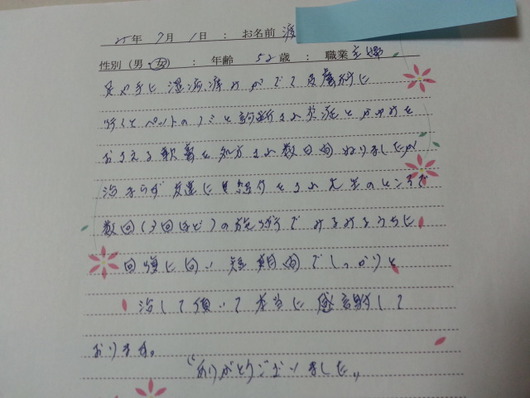 25年 7月 1日 : お名前 渡
性別 (男・女) : 年齢 52歳 : 職業 主婦
足や手に湿疹痒みがでて皮膚科に
行くとペットのノミと診断され炎症とかゆみを
おさえる軟膏を処方され数日間ぬりましたが
治まらず友達に紹介をされ先生のところで
数回(3回ほど)の施術でみるみるうちに
回復に向い短期間でしっかりと
治して頂いて本当に感謝して
おります。
"ありがとうございました。"